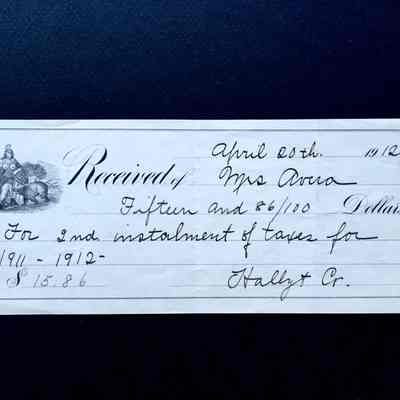 April 20th. 1912
Received of Mrs Avera
Fifteen and 86/100 Dollars
For 2nd instalment of taxes for
1911 - 1912-
$ 15.86 Hallyt Cr.